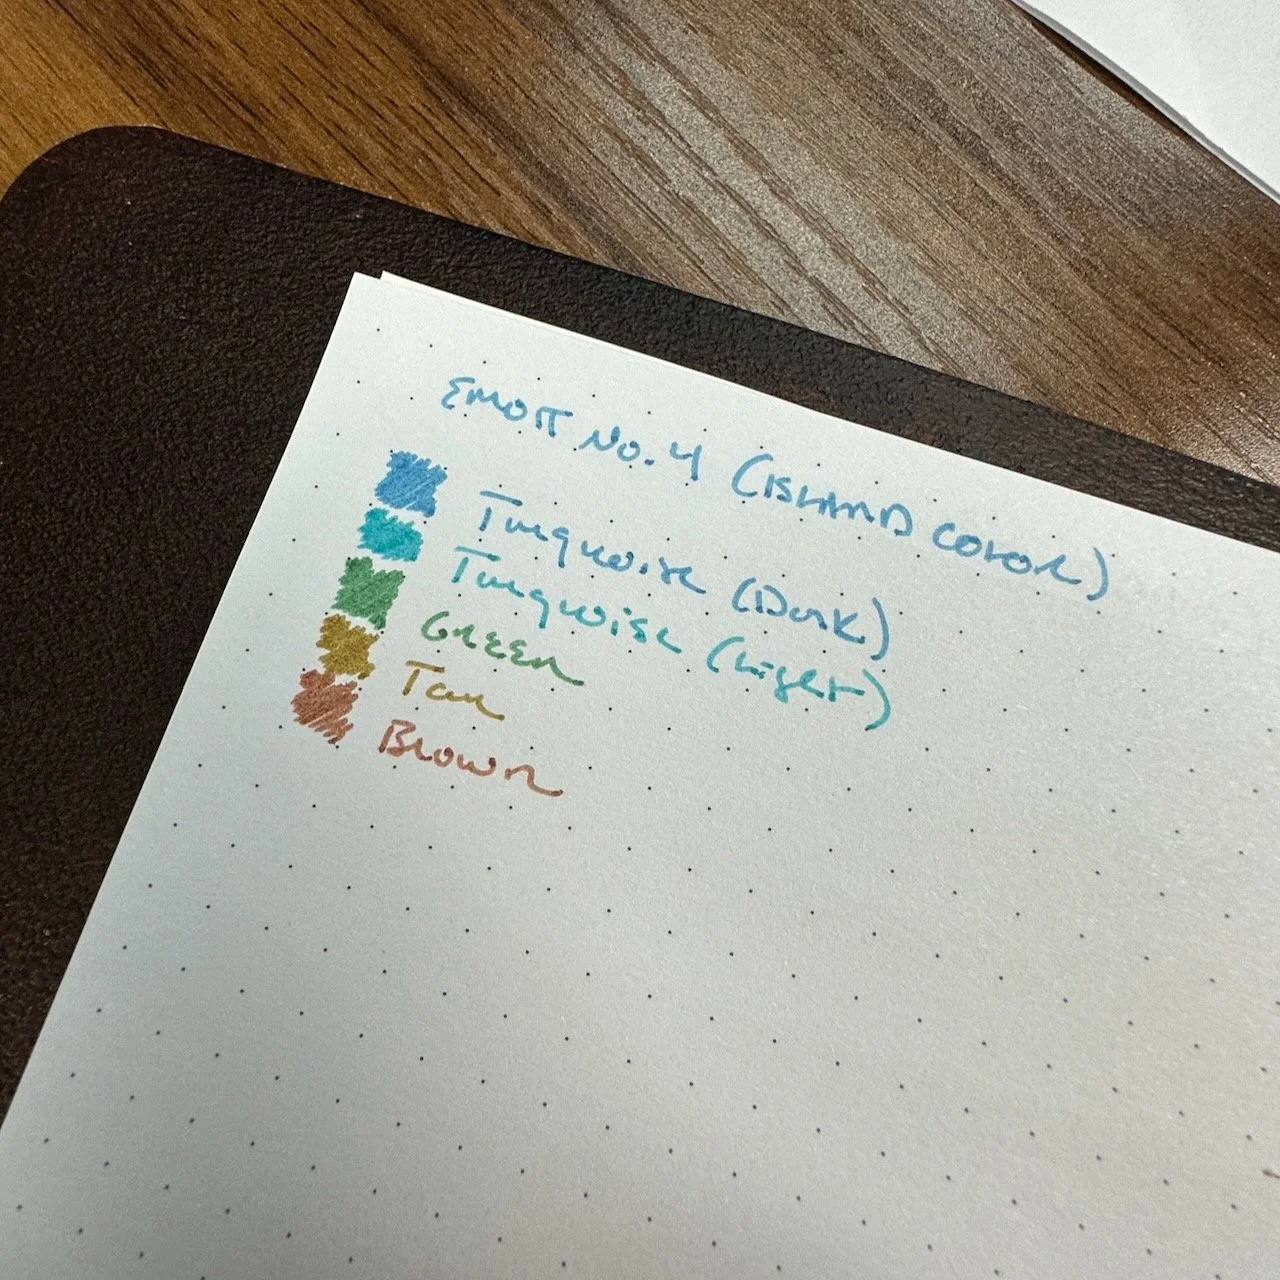 EMOTT No. 4 (ISLAND COLOR)
Turquoise (Dark)
Turquoise (Light)
GREEN
Tan
Brown